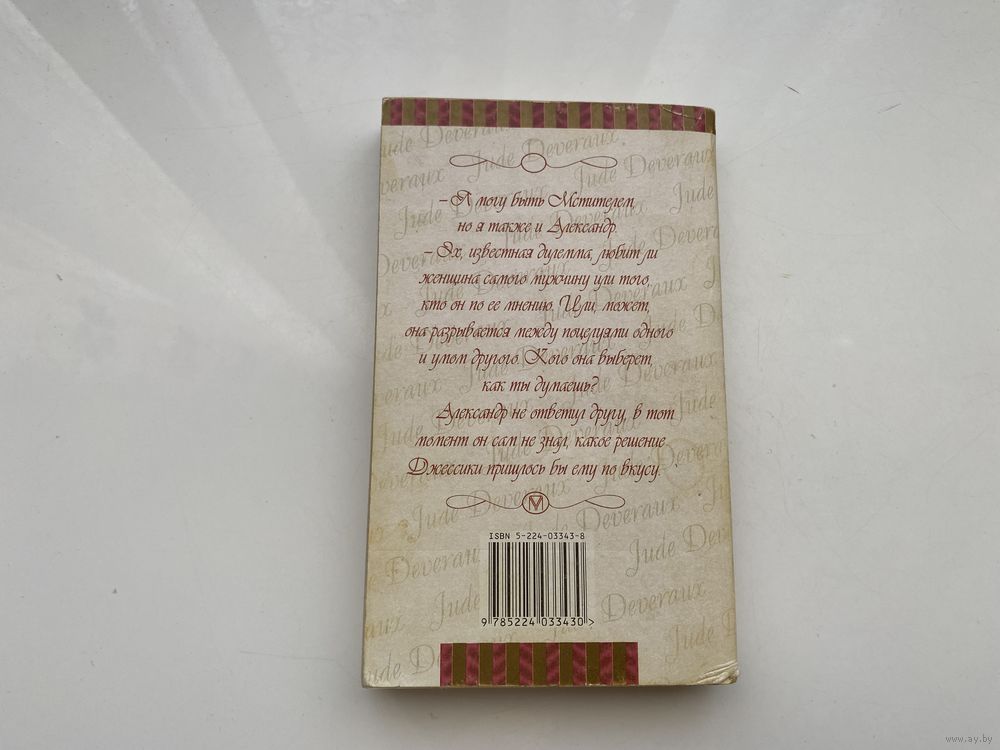 Jude Deveraux
– Я могу быть Мстителем,
но я также и Александр.
– Эх, известная дилемма, любит ли
женщина самого мужчину или того,
кто он по ее мнению. Или, может,
она разрывается между поцелуями одного
и умом другого. Кого она выберет,
как ты думаешь?
Александр не ответил другу, в тот
момент он сам не знал, какое решение
Джессики пришлось бы ему по вкусу.
ISBN 5-224-03343-8
9 785224 033430 >
www.ay.by